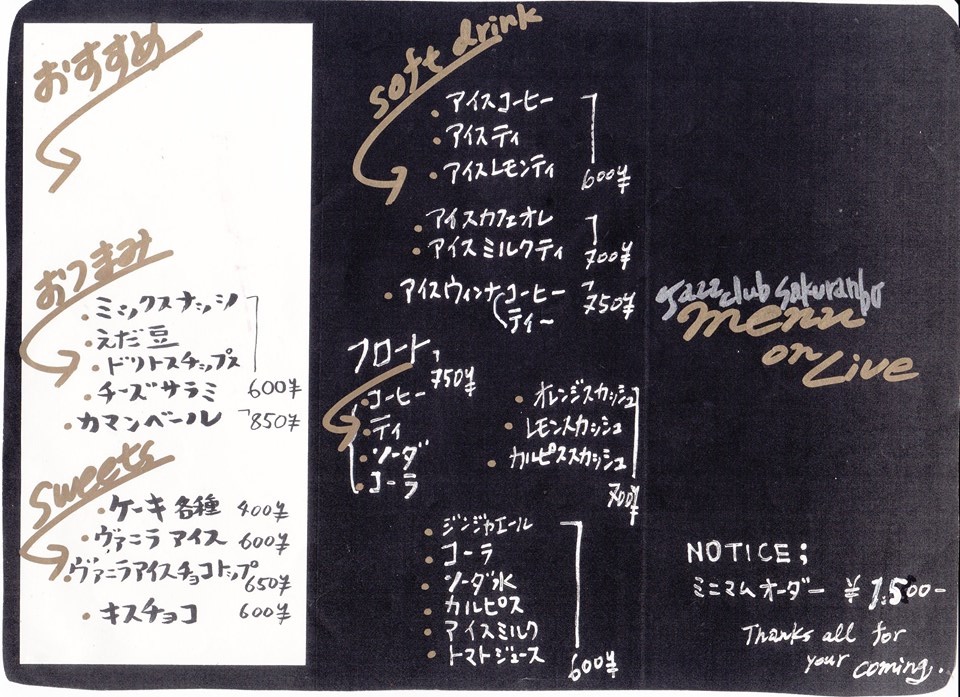 おすすめ
おつまみ
ミックスナッツ
えだ豆
ドリトスチップス
チーズサラミ 600¥
カマンベール 850¥
sweets
ケーキ各種 400¥
ヴァニラアイス 600¥
ヴァニラアイスチョコトップ 650¥
キスチョコ 600¥
soft drink
アイスコーヒー
アイスティ
アイスレモンティ 600¥
アイスカフェオレ
アイスミルクティ 700¥
アイスウィンナーコーヒー 750¥
ティー
フロート 750¥
コーヒー
ティ
ソーダ
コーラ
オレンジスカッシュ
レモンスカッシュ
カルピススカッシュ
700¥
ジンジャエール
コーラ
ソーダ水
カルピス
アイスミルク
トマトジュース 600¥
Jazz club Sakuranbo
menu
on Live
NOTICE;
ミニマムオーダー ¥1,500-
Thanks all for
your coming.